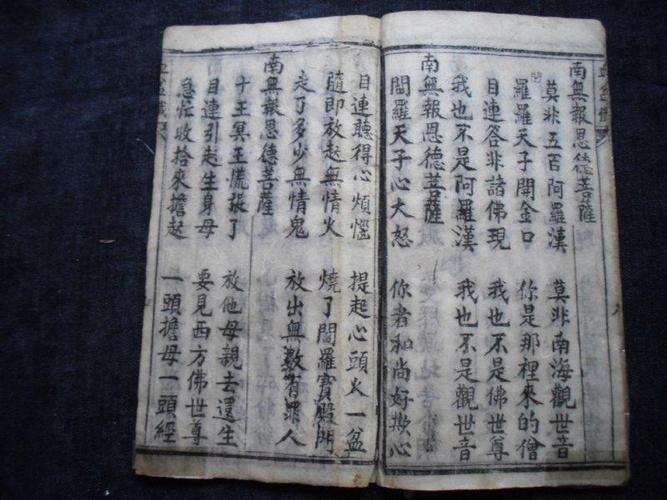 南無報恩德菩薩
莫非五百阿羅漢 莫非南海觀世音
閻
羅羅天子開金口 你是那裡來的僧
目連答非諸佛現 我也不是佛世尊
我也不是阿羅漢 我也不是觀世音
南無報恩德菩薩
閻羅天子心大怒 你者和尚好欺心
目連聽得心煩惱 提起心頭火一盆
隨即放起無情火 燒了閻羅寶殿門
走了多少無情鬼 放出無數有罪人
南無報恩德菩薩
十王冥王慌張了 放他母親去還生
目連引起生身母 要見西方佛世尊
急忙收拾來擔起 一頭擔母一頭經